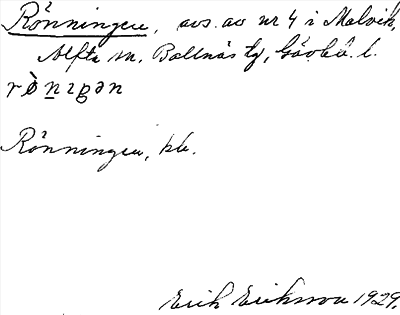 Rönningen, avs. av nr 4 i Malvik,
Alfta sn. Bollnäs tg, Gävleb. l.
Rönningen, kb.
Erik Eriksson 1929.